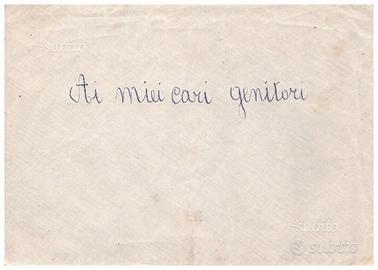 subito
Ai miei cari genitori
subito
subito